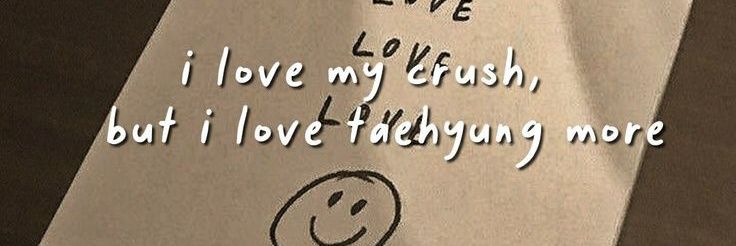 LOVE
LOVE
i love my crush,
LOVE
but i love taehyung more